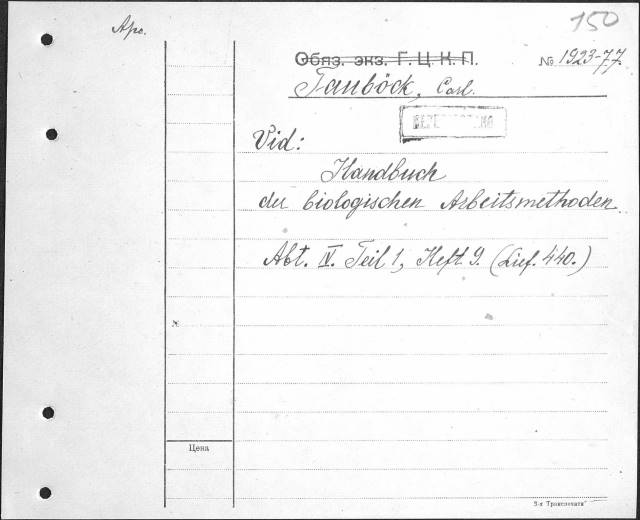 150
Обяз. экз. Г. Ц. К. П. № 1923-77
Tauböck, Carl.
Vid:
Handbuch
der biologischen Arbeitsmethoden
Abt. IV. Teil 1, Heft 9. (Lief. 440.)
Цена